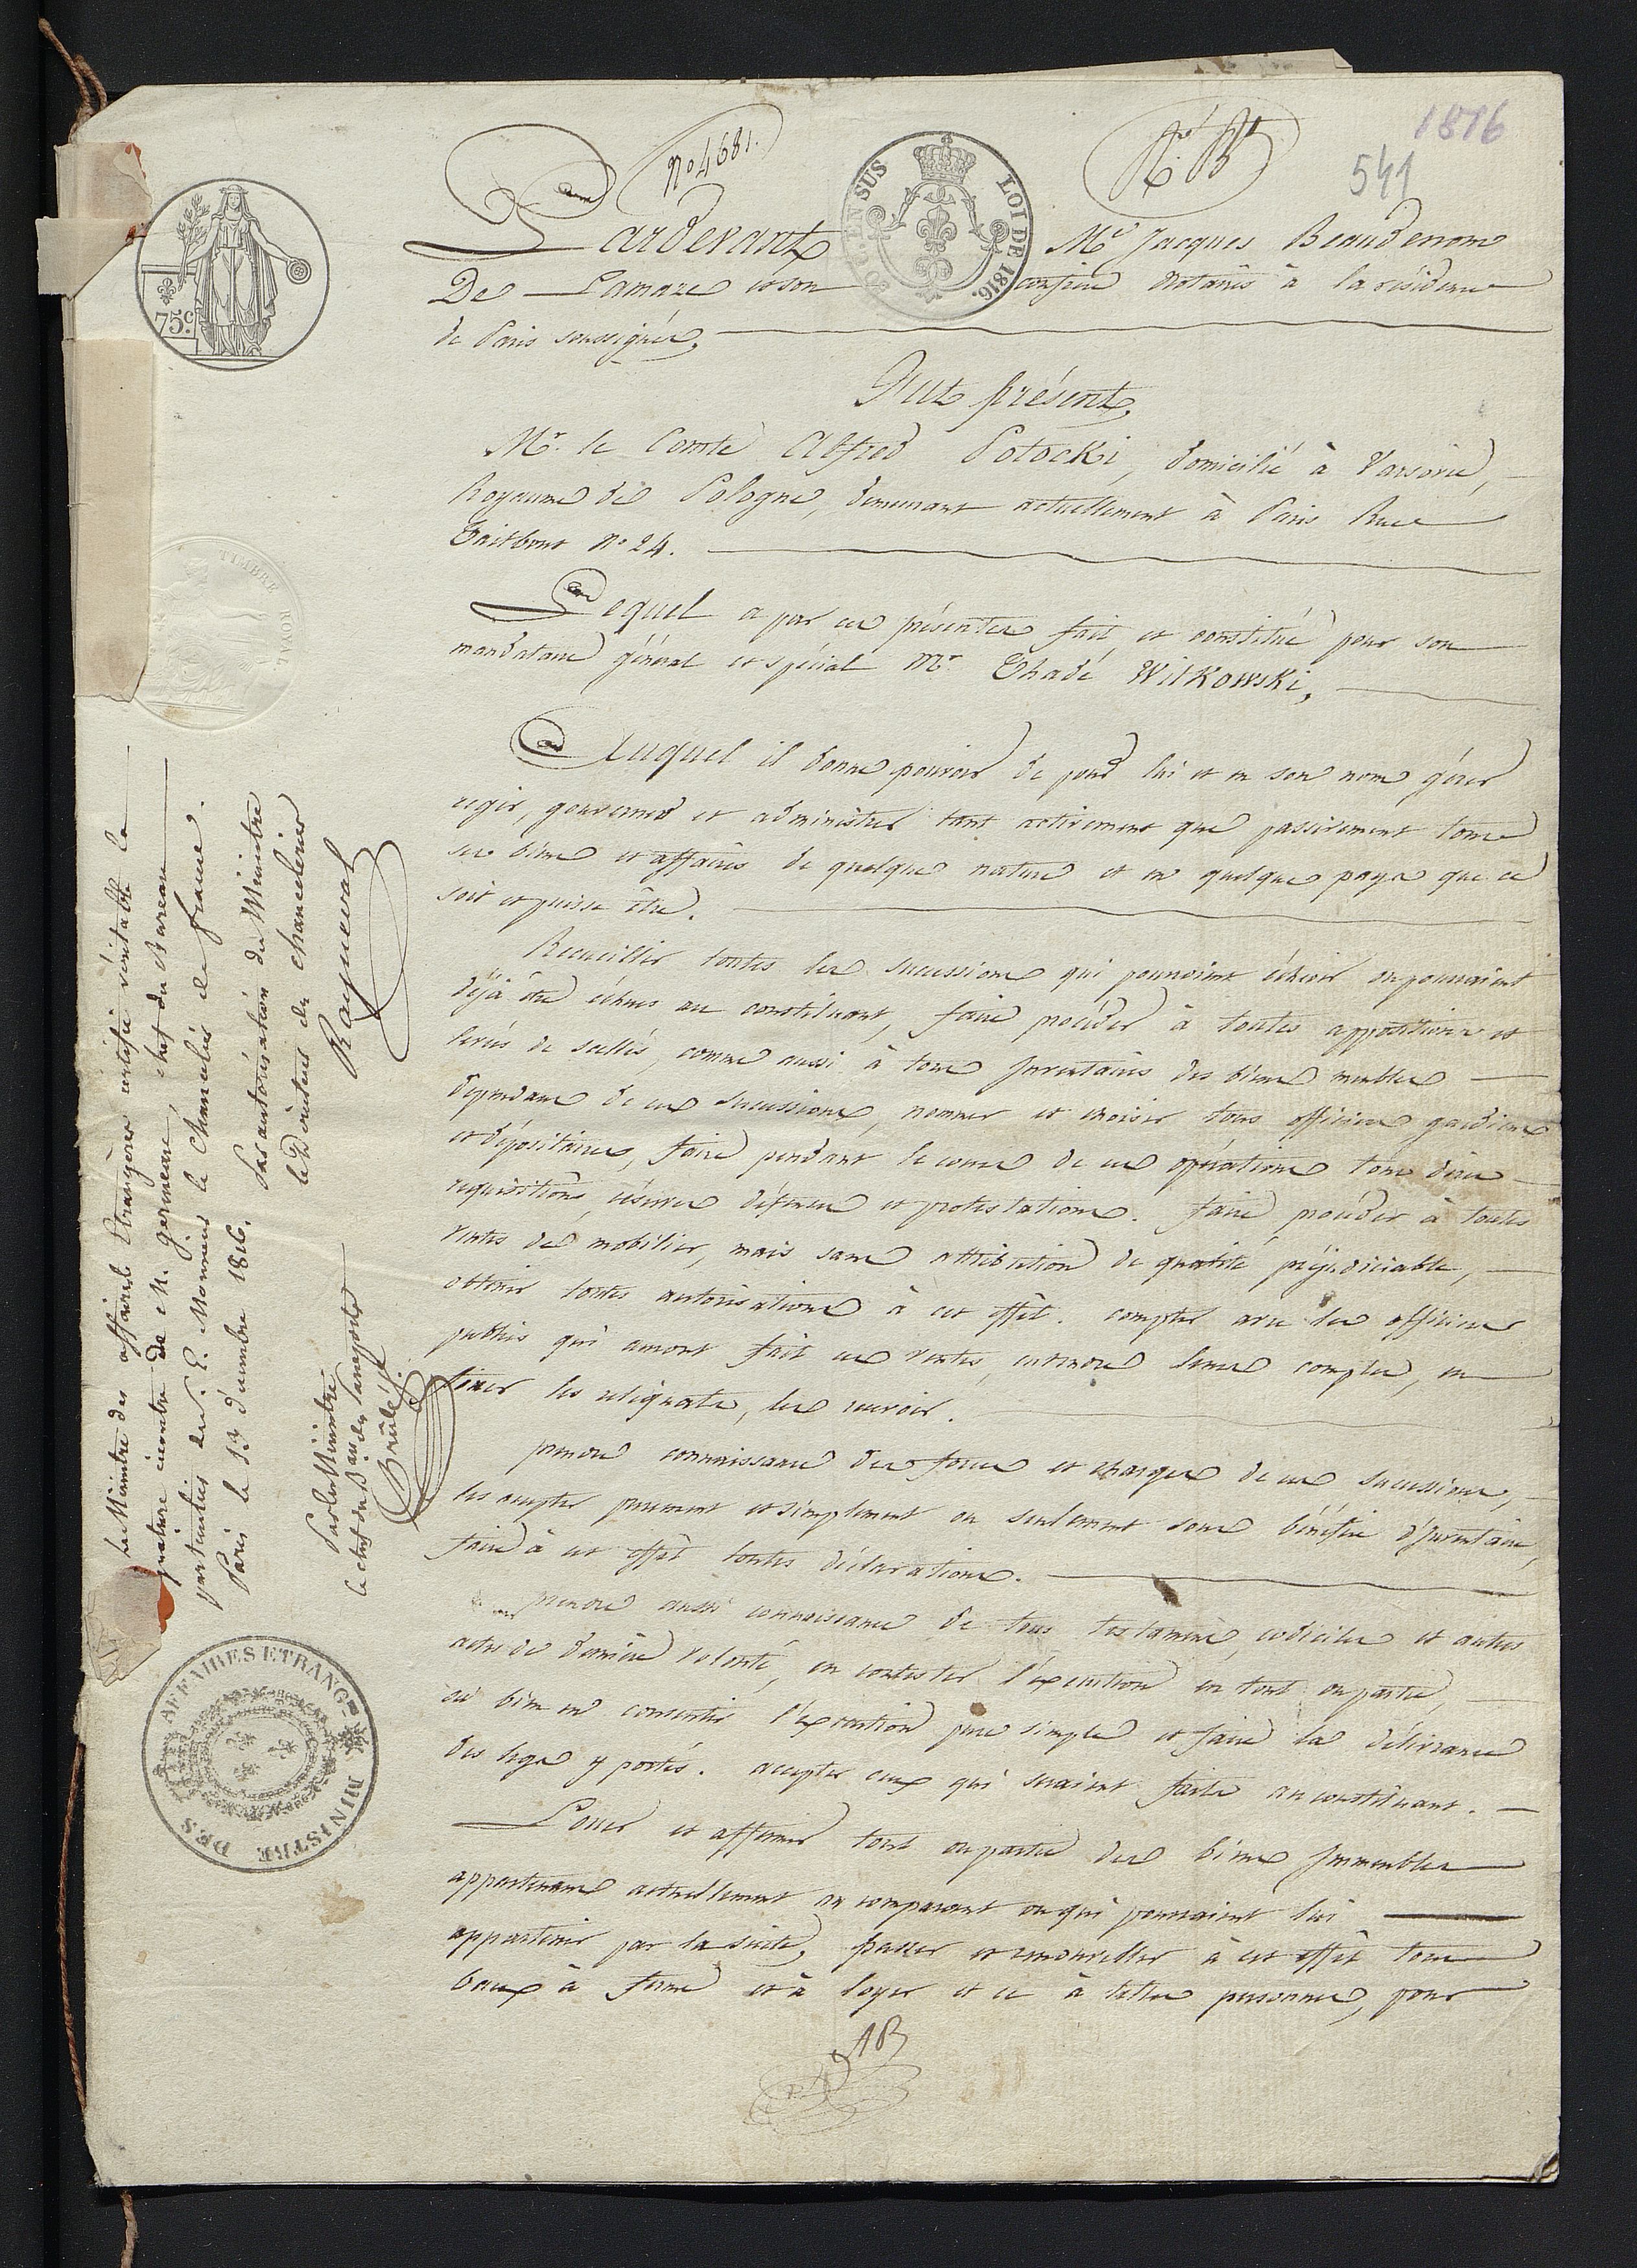 1816
541
No 4681.
Pardevant Me Jacques Beaudenom
De Lamaze et son confrère Notaires à la résidence
de Paris soussignés,
Fut présent,
Mr. le Comte Alfred Potocki, domicilié à Varsovie,
Royaume de Pologne, demeurant actuellement à Paris Rue
Taitbout No 24.
Lequel a par ces présentes fait et constitué pour son
mandataire général et spécial Mr. Thadé Witkowski,
Auquel il donne pouvoir de pour lui et en son nom gérer
régir, gouverner et administrer tant activement que passivement tous
ses biens et affaires de quelque nature et en quelque pays que ce
soit et puisse être.
Recueillir toutes les successions qui pourraient échoir ou pourraient
déjà être échues au constituant, faire procéder à toutes appositions et
levées de scellés, comme aussi à tous Inventaires des biens meubles
dépendans de ces successions, nommer et choisir tous officiers gardiens
et dépositaires, faire pendant le cours de ces opérations tous dires
requisitions, réserves défenses et protestations. faire procéder à toutes
ventes de mobilier, mais sans attribution de qualité préjudiciable,
obtenir toutes autorisations à cet effet. compter avec les officiers
publics qui auront fait ces ventes, entendre leurs comptes, en
fixer les reliquats, les recevoir.
prendre connaissance des forces et charges de ces successions,
les accepter purement et simplement ou seulement sous bénéfice d'Inventaire,
faire à cet effet toutes déclarations.
prendre aussi connaissance de tous testamens, codiciles et autres
actes de dernière volonté, en contester l'exécution en tout ou partie,
ou bien en consentir l'exécution pure simple et faire la délivrance
des legs y portés. accepter ceux qui seraient faits au constituant.
Louer et affermer tout ou partie des biens Immeubles
appartenans actuellement au comparant ou qui pourraient lui
appartenir par la suite, passer et renouveller à cet effet tous
baux à ferme et à loyer et ce à telles personnes, pour
AP
75c.
TIMBRE ROYAL
EN SUS
LOI DE 1816.
Le Ministre des affaires Etrangères certifie véritable la
signature cicontre de M. germeau, chef du Bureau
particulier de S. E. Monsieur le Chancelier de france.
Paris le 13 décembre 1816.
Par autorisation du Ministre
le Directeur des chancelleries
Rayneval
Par le Ministre
le chef du Bau des Passeports
Brulé f.
MINISTRE DES AFFAIRES ETRANG.